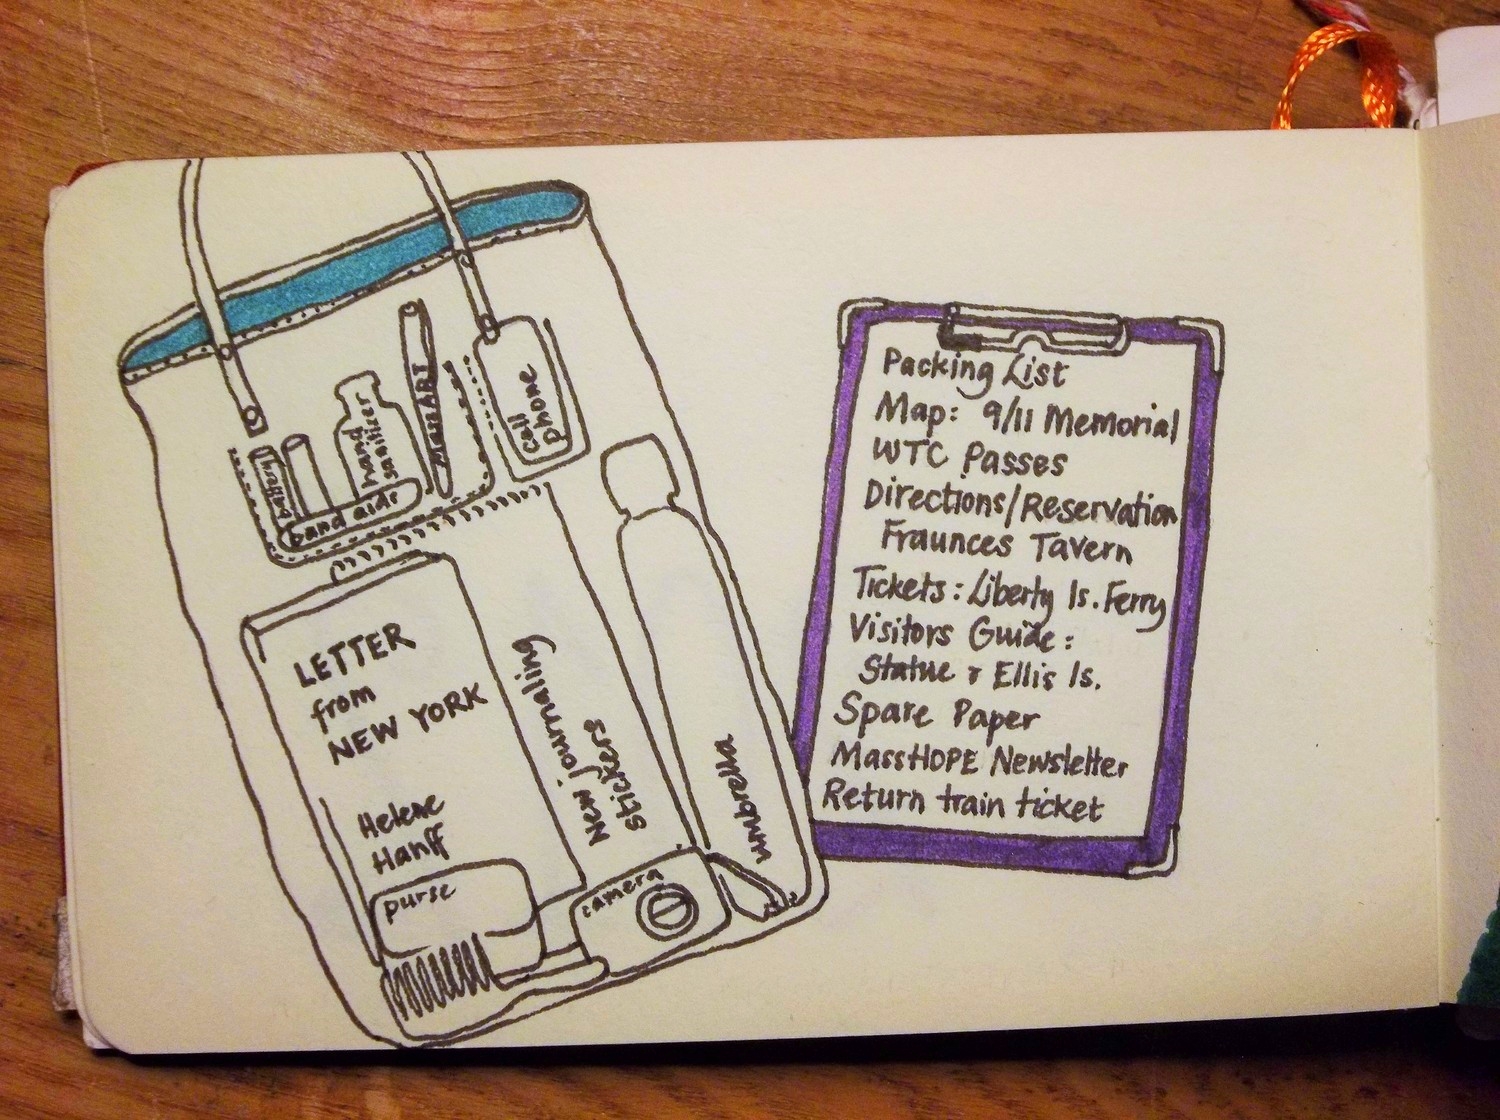 battery
hand
sanitizer
band aids
cell
phone
LETTER
from
NEW YORK
Helene
Hanff
New journaling
stickers
umbrella
purse
camera
Packing List
Map: 9/11 Memorial
WTC Passes
Directions/Reservation
Fraunces Tavern
Tickets: Liberty Is. Ferry
Visitors Guide:
Statue & Ellis Is.
Spare Paper
MassHOPE Newsletter
Return train ticket